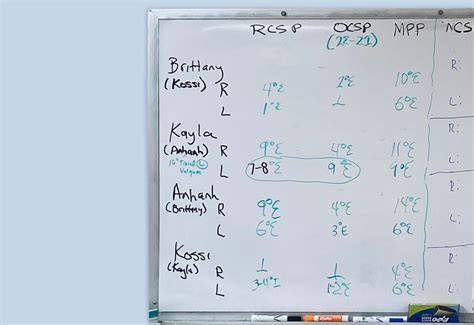 RCSP OCSP MPP NCS
(22-23)
Brittany R:
(Kossi) R 4°E 2°E 10°E
L 1°E ⊥ 6°E L:
Kayla R:
(Anhanh) R 9°E 4°E 11°E
16° Tibial Ⓛ Valgum L 7-8°E 9°E 9°E L:
Anhanh R:
(Brittany) R 9°E 4°E 14°E
L 6°E 3°E 6°E L:
Kossi R:
(Kayla) R ⊥ ⊥ 4°E
L 3-4°I 1-2°E 6°E L:
Expo